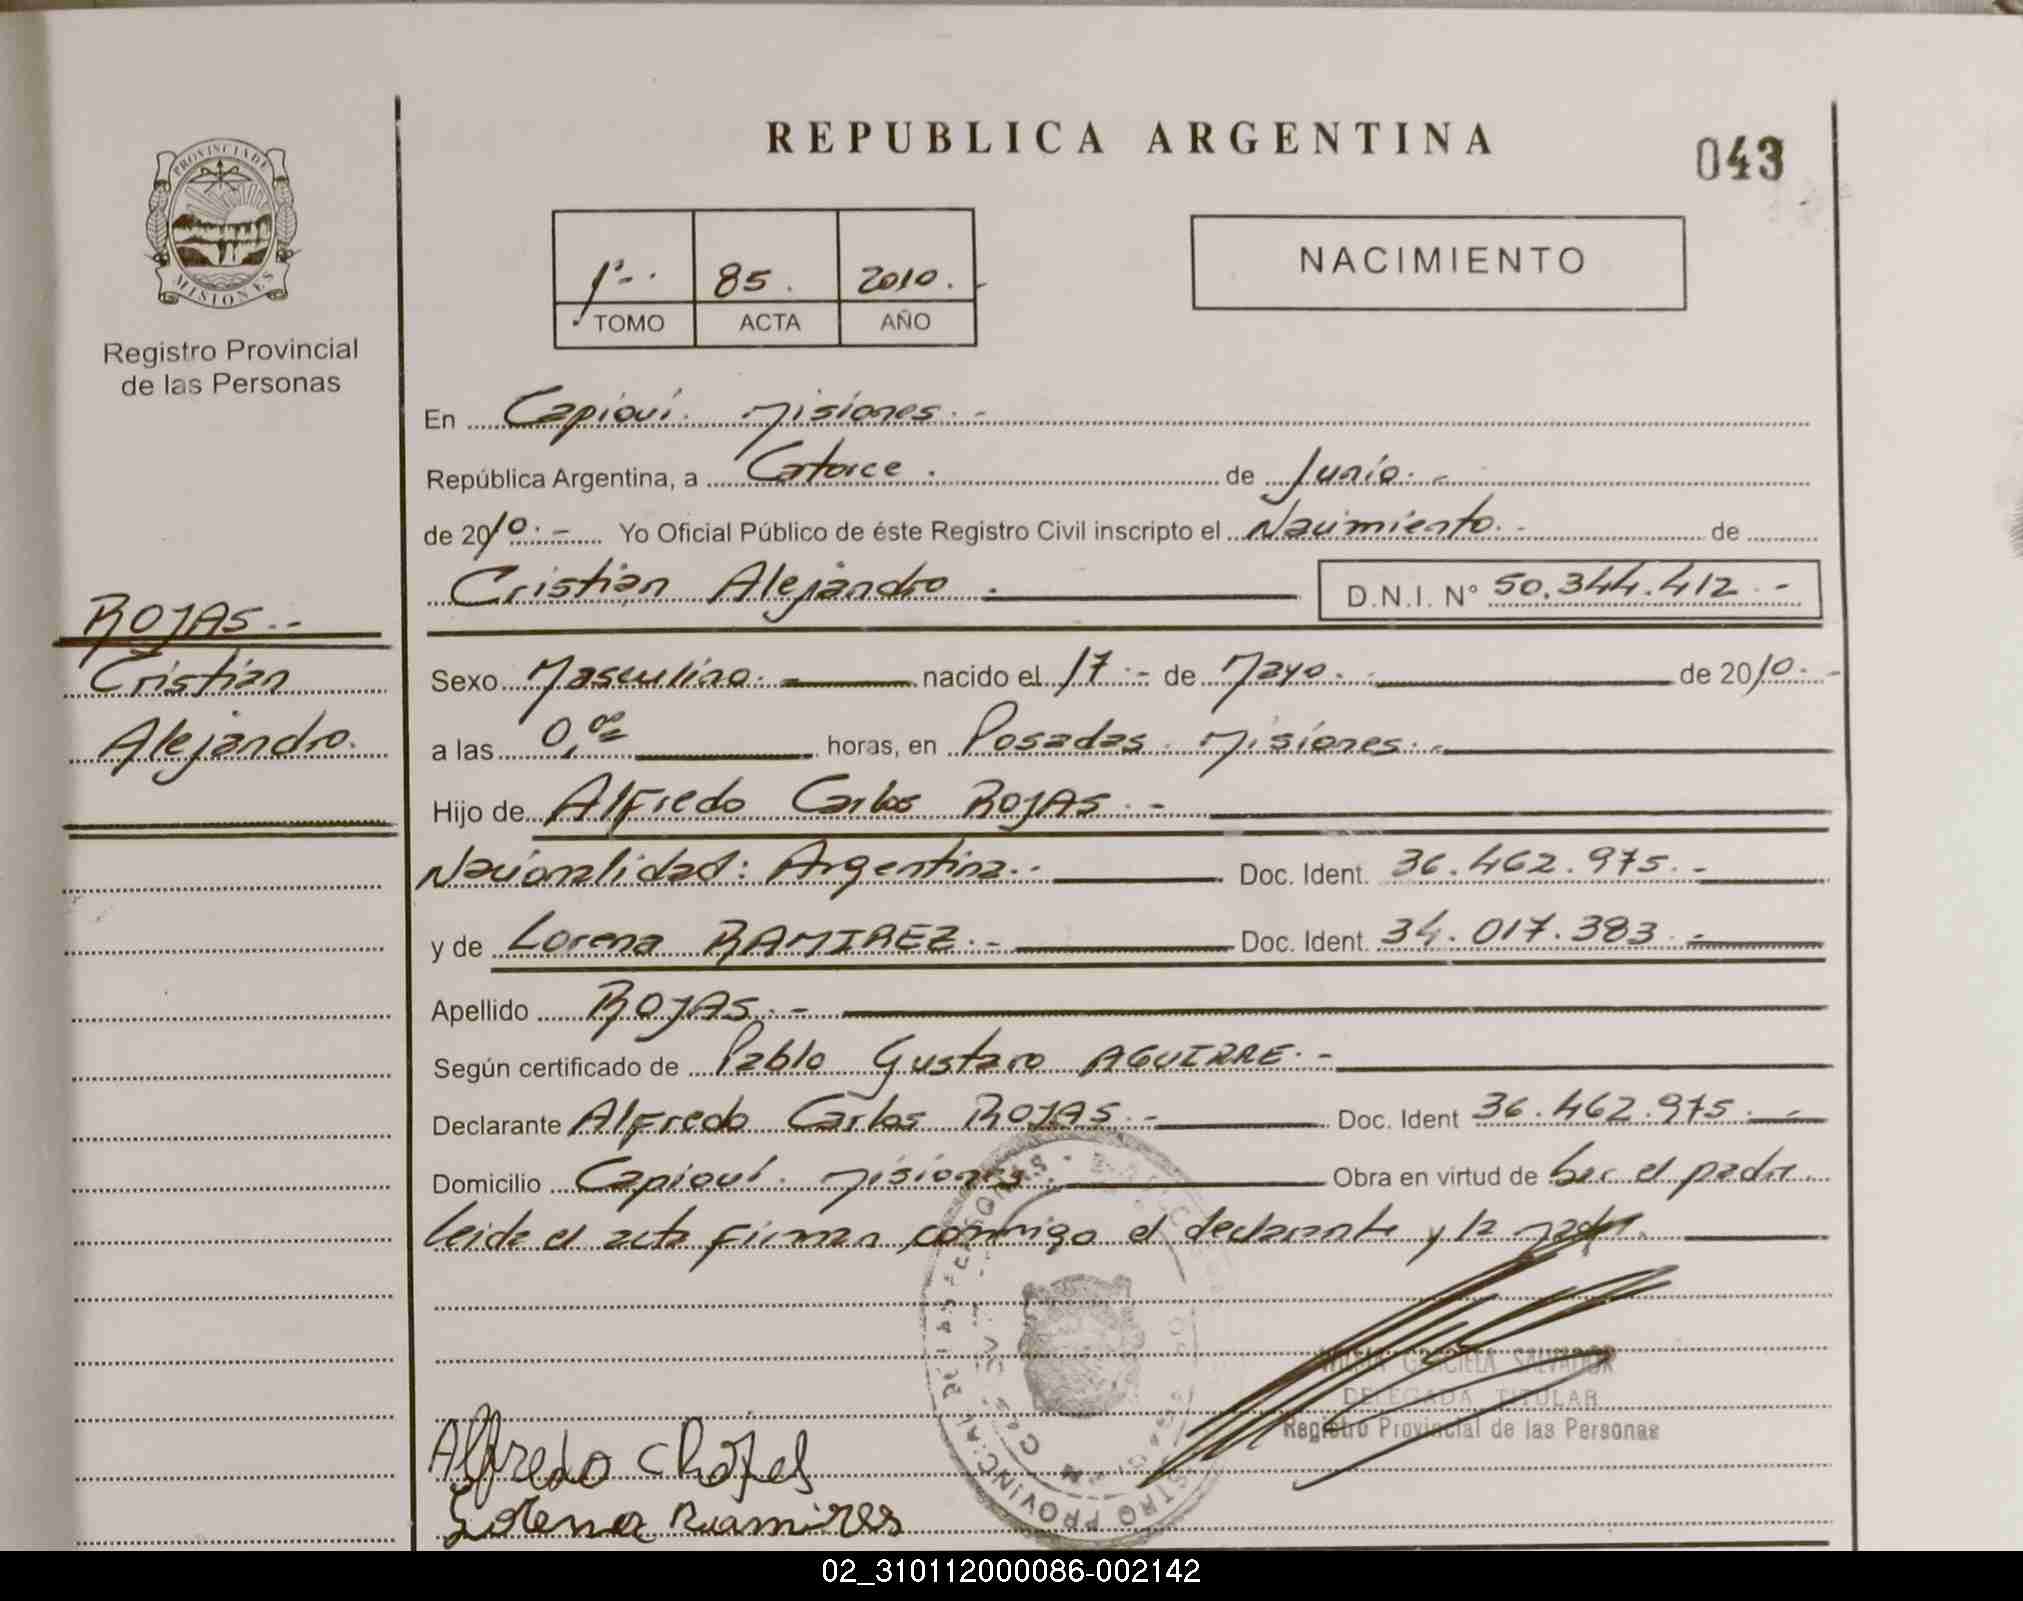 PROVINCIA DE
MISIONES
Registro Provincial
de las Personas
ROJAS.-
Cristian
Alejandro.
REPUBLICA ARGENTINA
043
1º-. 85. 2010.-
TOMO ACTA AÑO
NACIMIENTO
En Capioví. Misiones.-
República Argentina, a Catorce. de Junio.-
de 2010.- Yo Oficial Público de éste Registro Civil inscripto el Nacimiento.- de
Cristian Alejandro.
D.N.I. Nº 50.344.412.-
Sexo Masculino.- nacido el 17.- de Mayo.- de 2010.-
a las 0,00 horas, en Posadas. Misiones.-
Hijo de Alfredo Carlos ROJAS.-
Nacionalidad: Argentina.- Doc. Ident. 36.462.975.-
y de Lorena RAMIREZ.- Doc. Ident. 34.017.383.-
Apellido ROJAS.-
Según certificado de Pablo Gustavo AGUIRRE.-
Declarante Alfredo Carlos ROJAS.- Doc. Ident 36.462.975.-
Domicilio Capioví. Misiones. Obra en virtud de Ser el padre.
Leida el acta firman conmigo el declarante y la madre.
GRACIELA SALVADOR
DELEGADA TITULAR
Registro Provincial de las Personas
Alfredo
Lorena Ramires
02_310112000086-002142